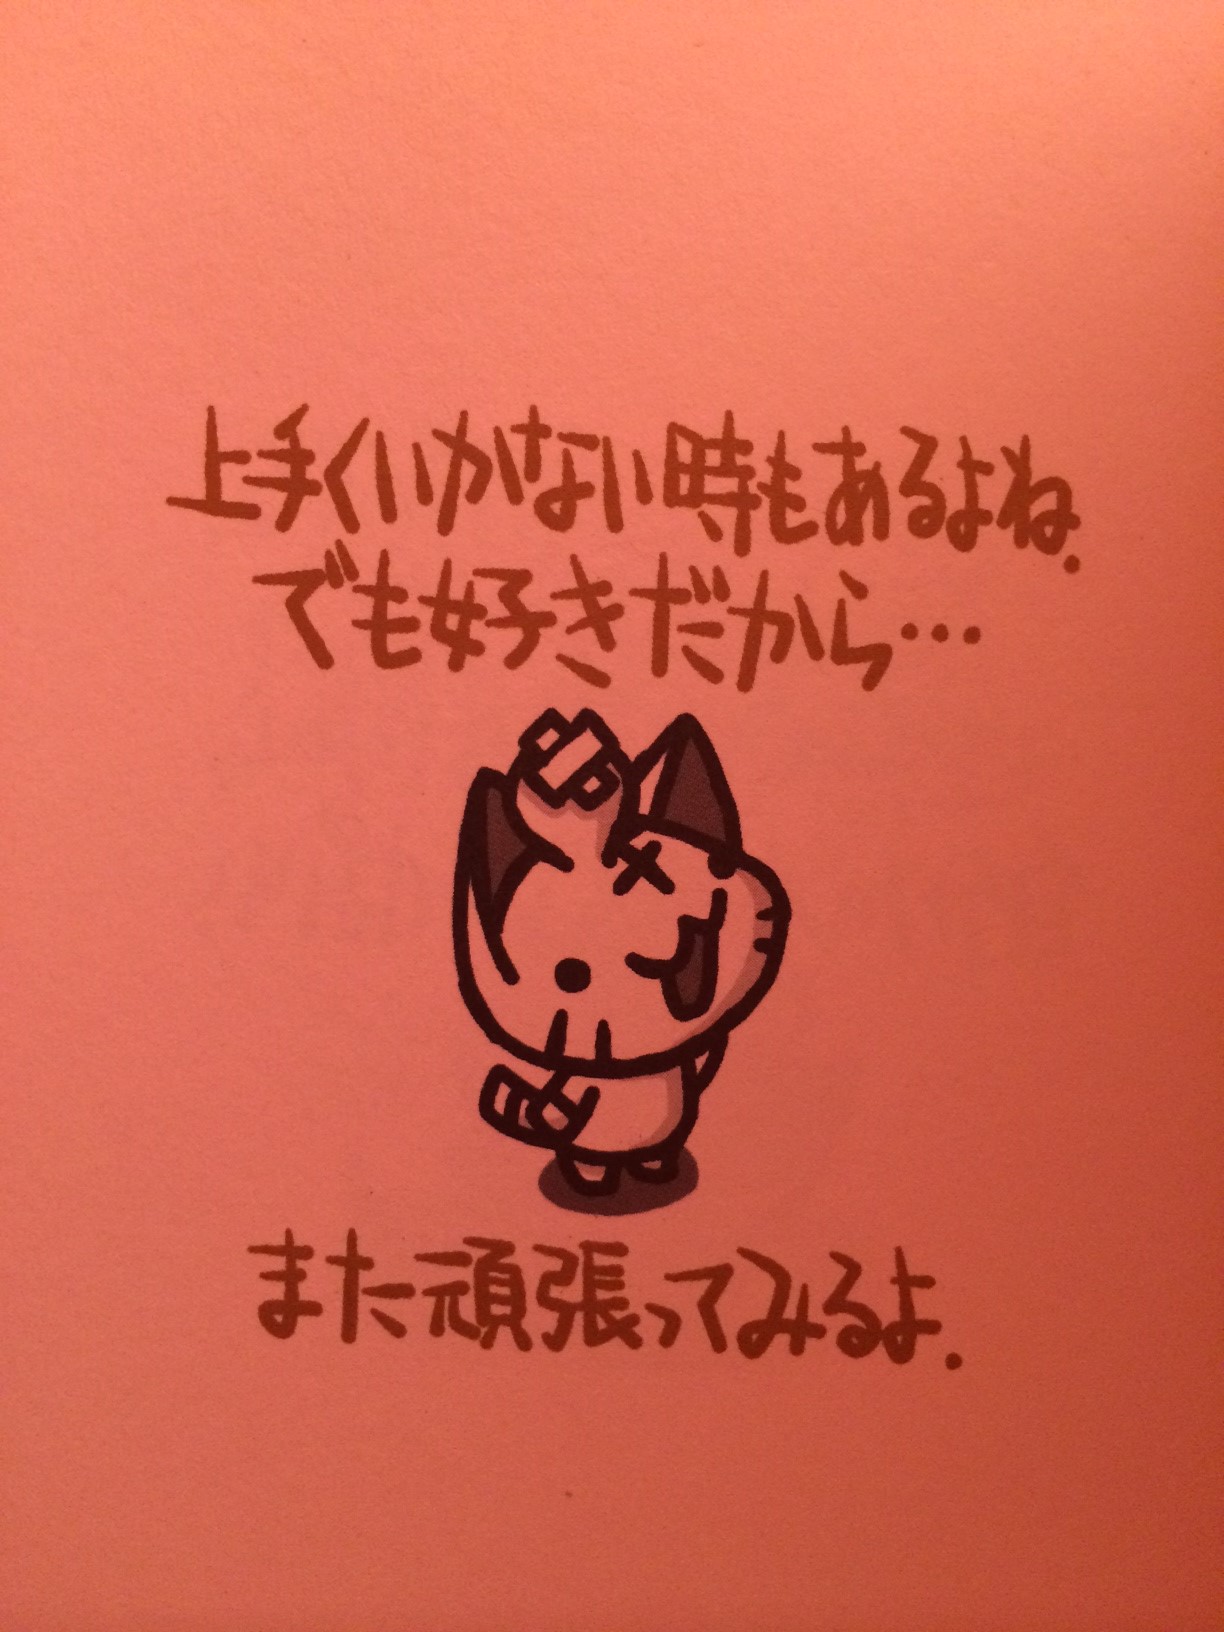 上手くいかない時もあるよね.
でも好きだから…
また頑張ってみるよ.